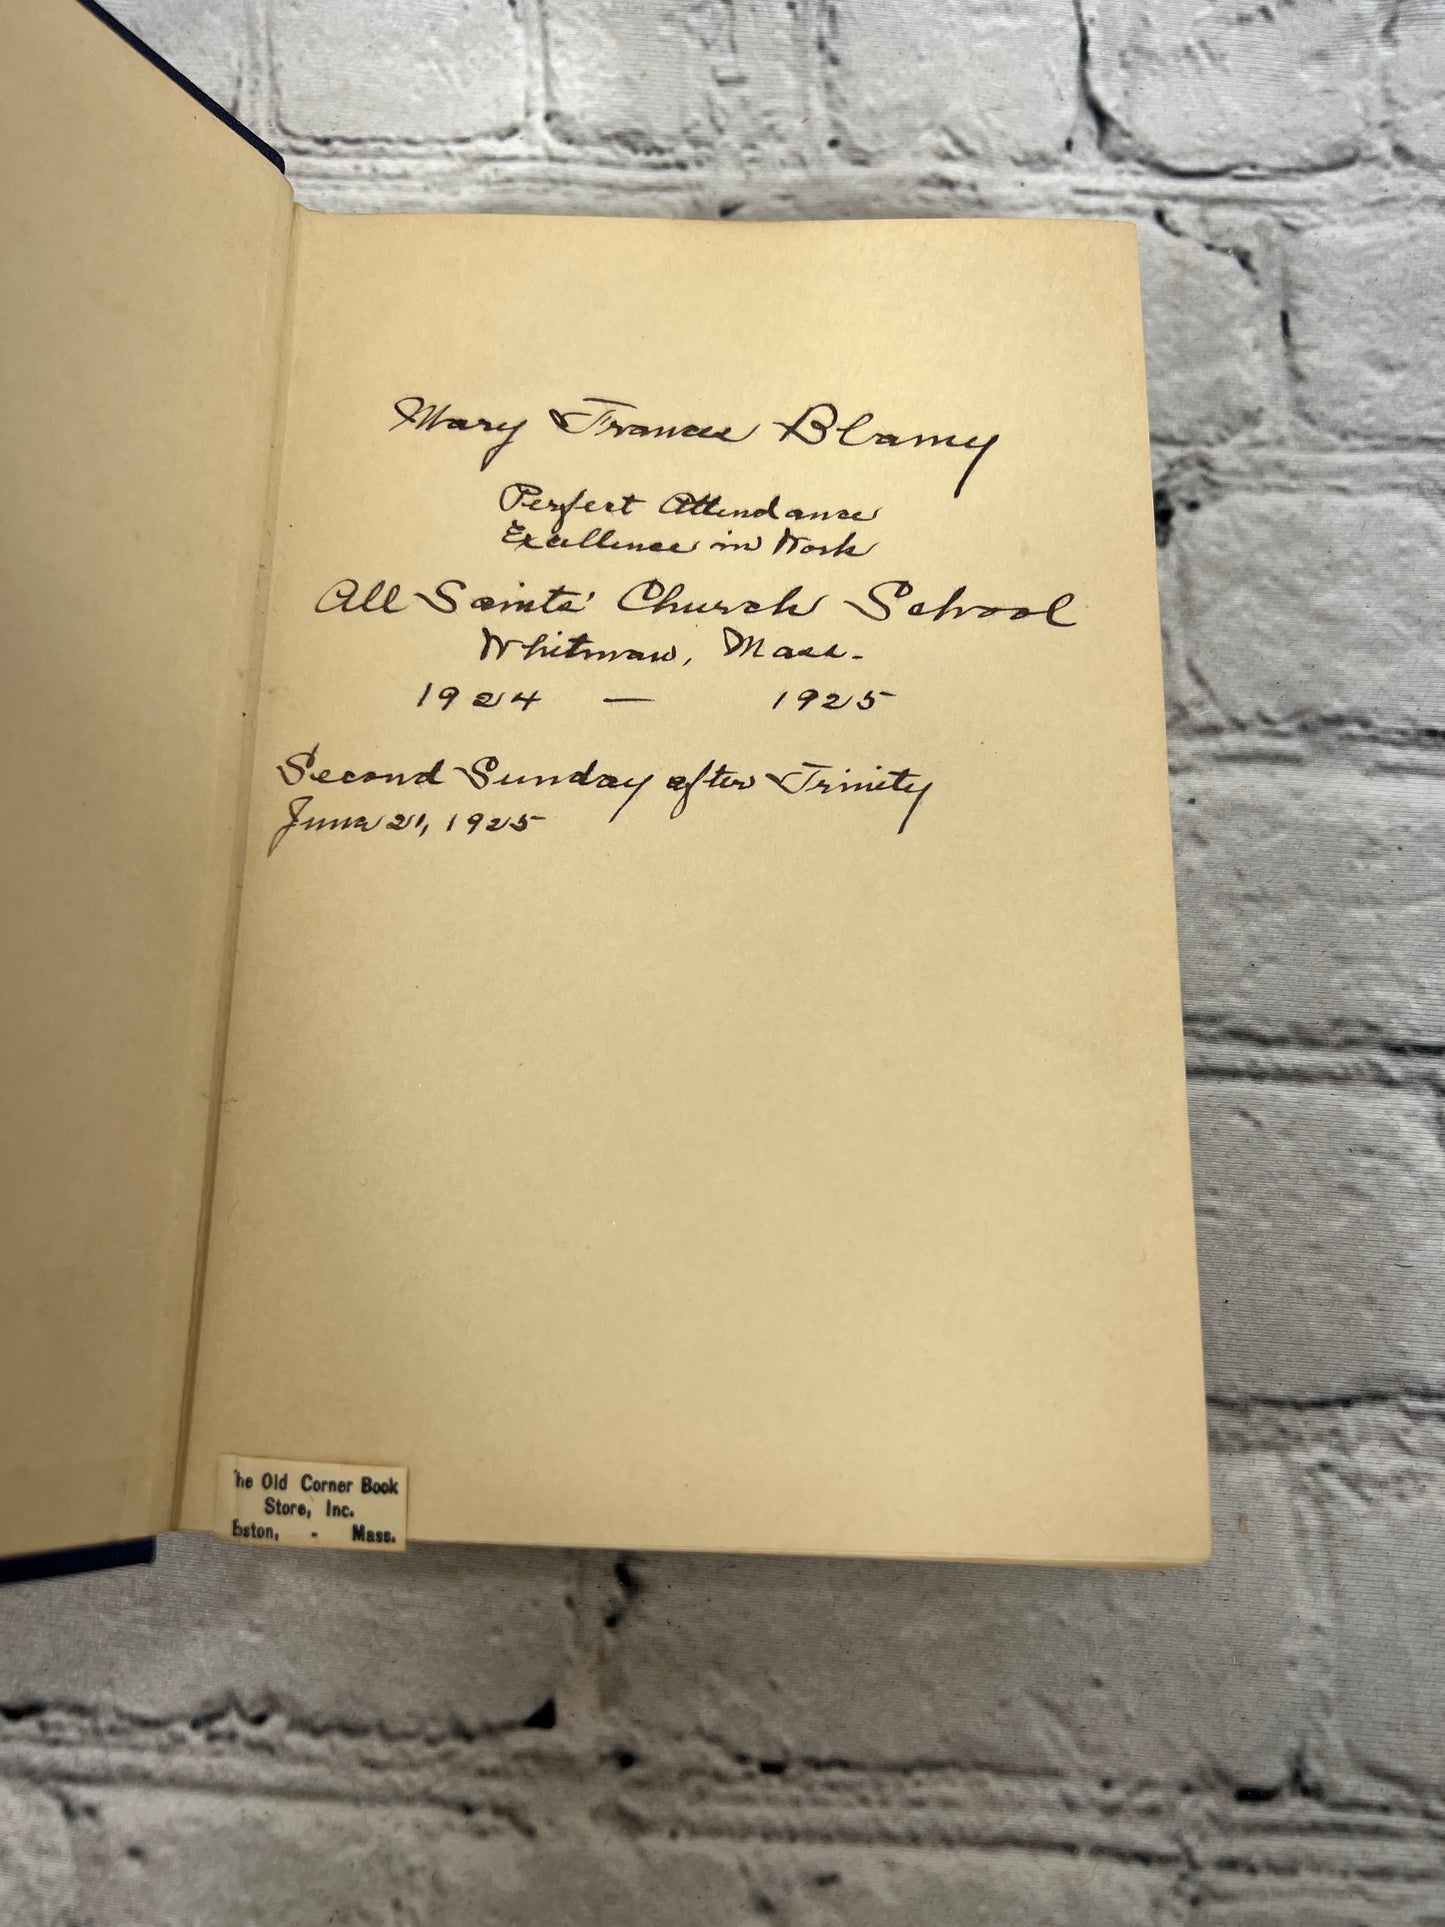 Mary Frances Blamy
Perfect Attendance
Excellence in Work
All Saints' Church School
Whitman, Mass.
1924 — 1925
Second Sunday after Trinity
June 21, 1925
he Old Corner Book
Store, Inc.
oston, - Mass.